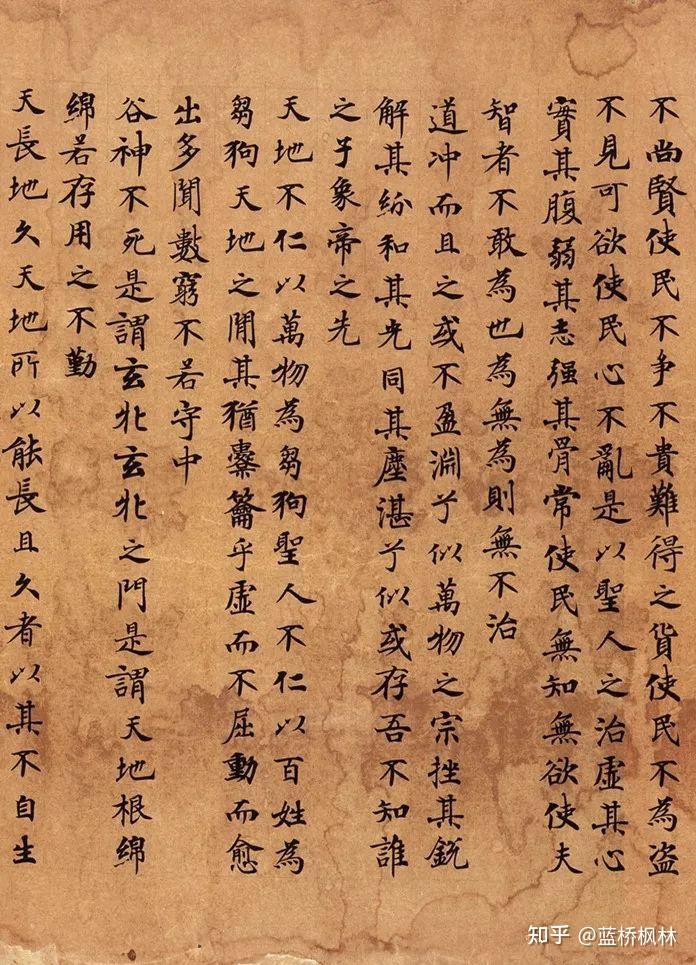 不尚賢使民不争不貴難得之貨使民不為盗
不見可欲使民心不亂是以聖人之治虚其心
實其腹弱其志强其骨常使民無知無欲使夫
智者不敢為也為無為則無不治
道冲而且之或不盈淵兮似萬物之宗挫其銳
解其紛和其光同其塵湛兮似或存吾不知誰
之子象帝之先
天地不仁以萬物為芻狗聖人不仁以百姓為
芻狗天地之間其猶橐籥乎虚而不屈動而愈
出多聞數窮不若守中
谷神不死是謂玄牝玄牝之門是謂天地根綿
綿若存用之不勤
天長地久天地所以能長且久者以其不自生
知乎 @蓝桥枫林